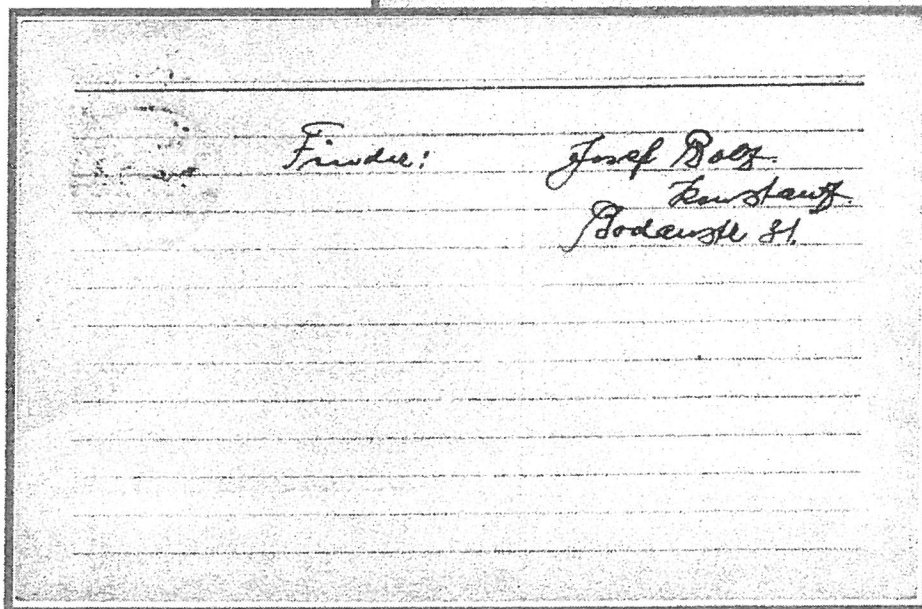 Finder: Josef Bolz.
Konstanz.
Bodanstr 31.